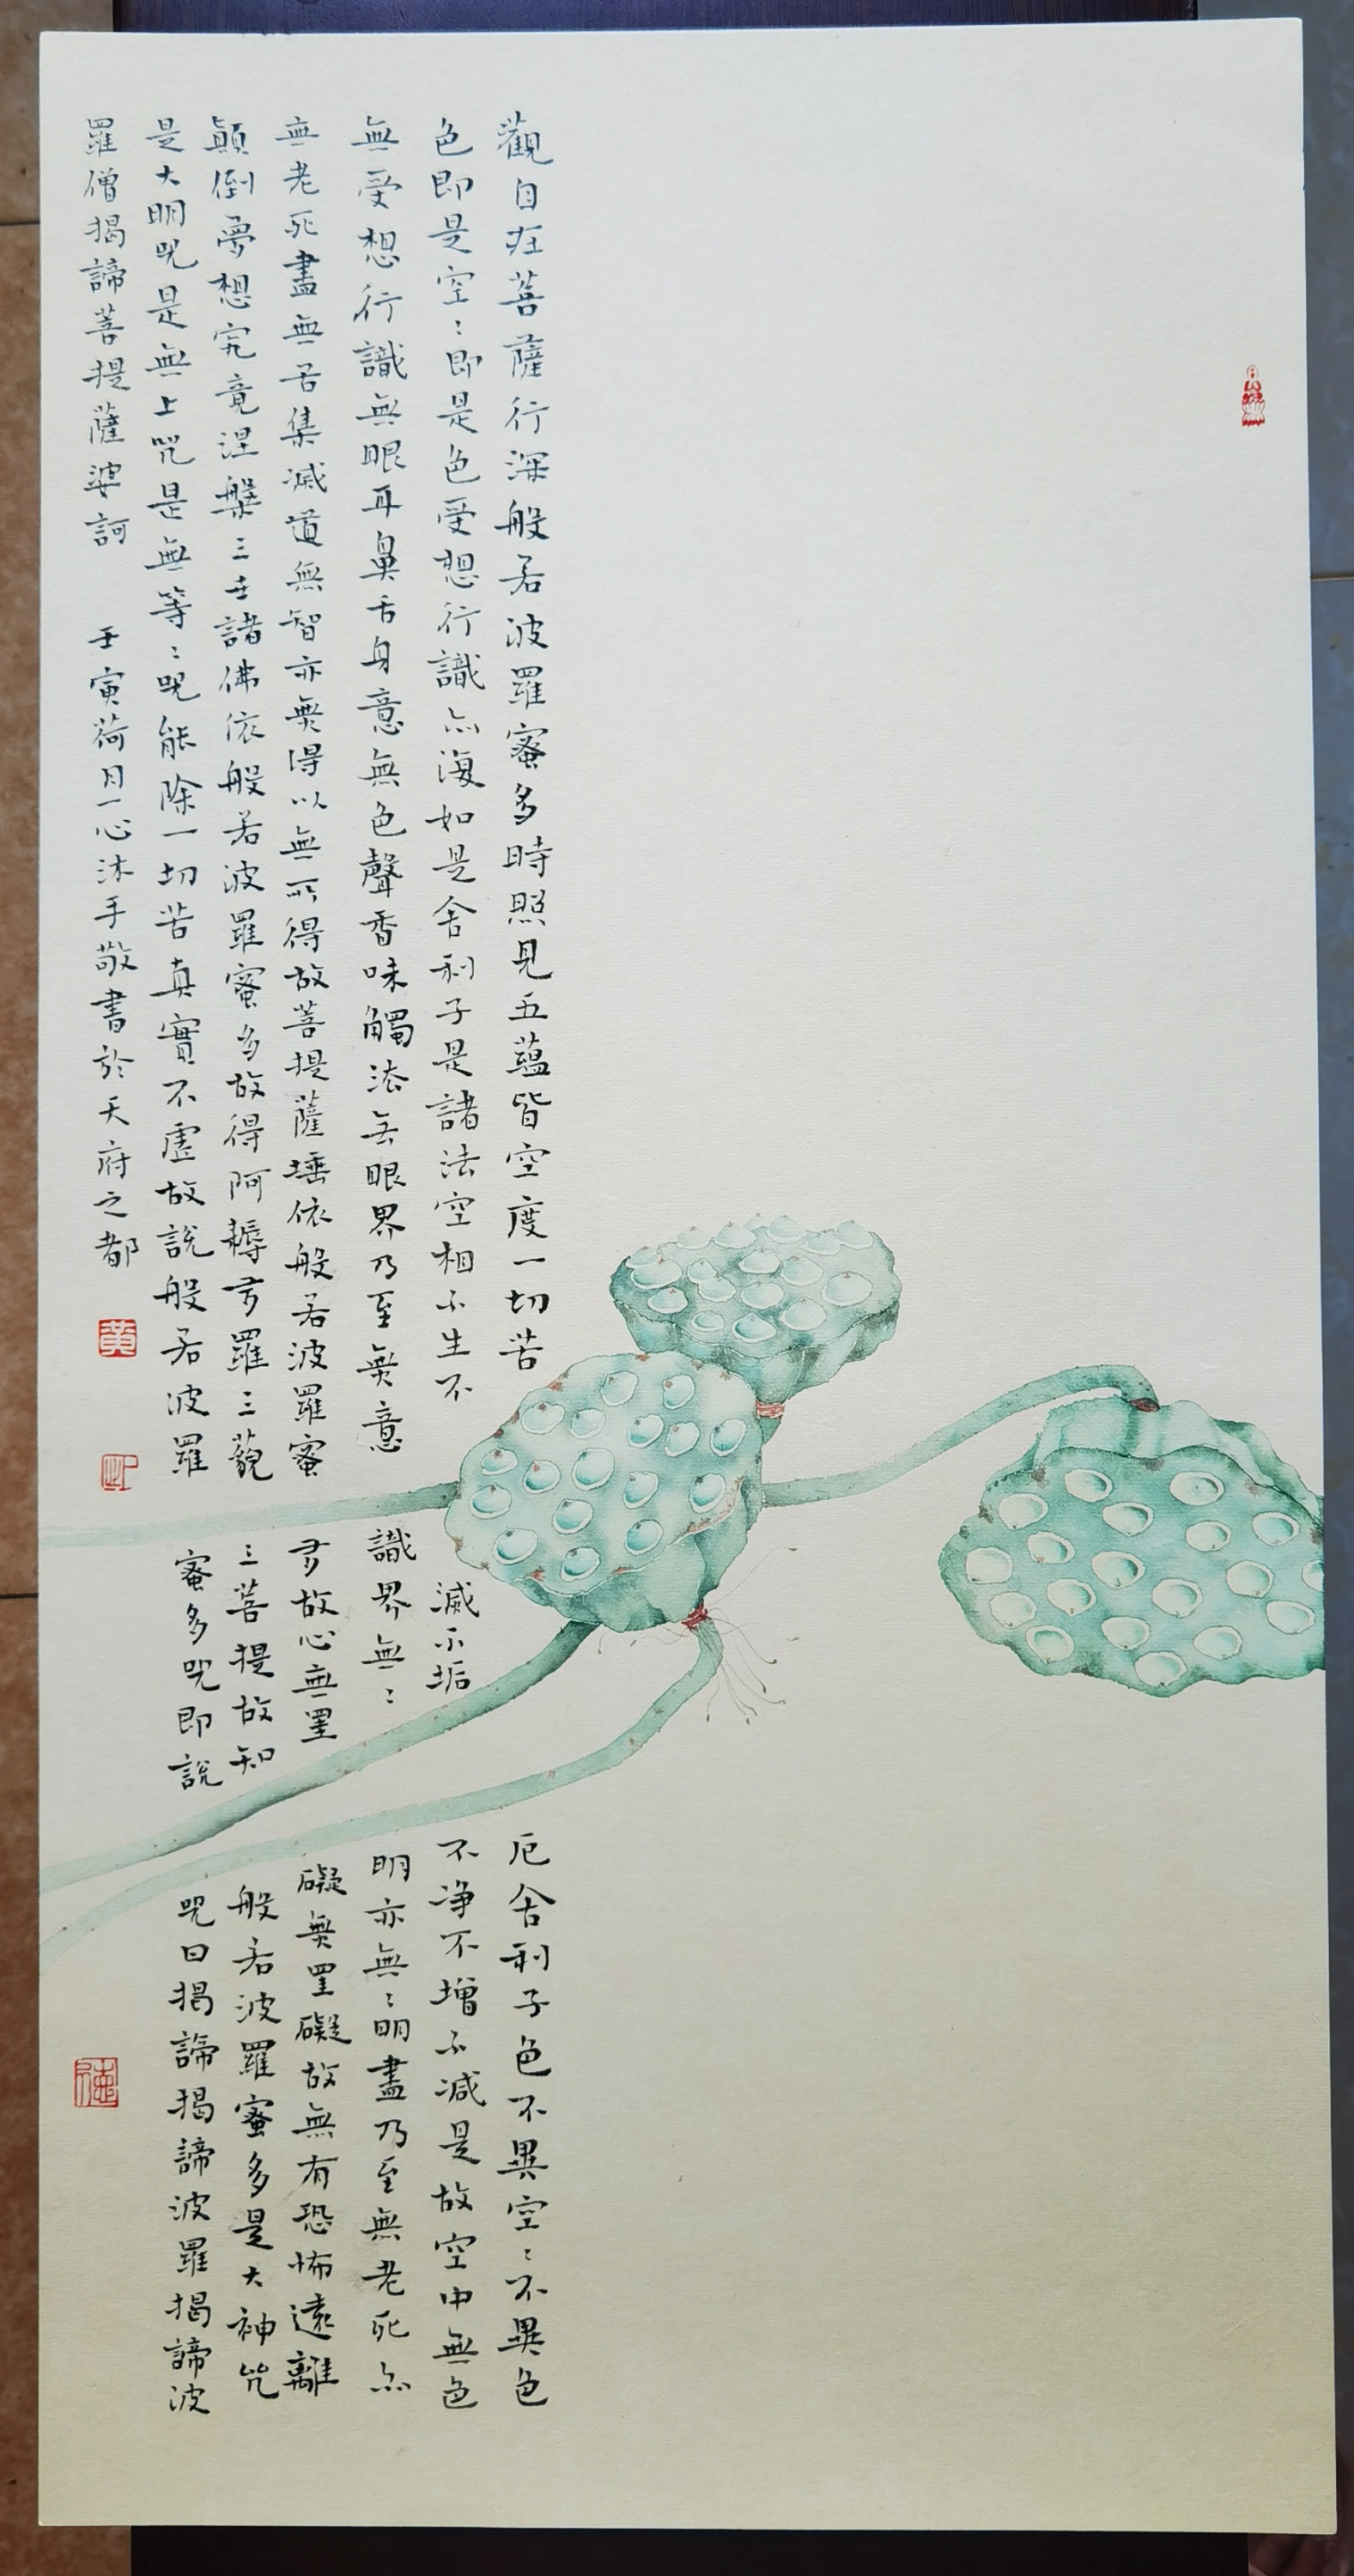 觀自在菩薩行深般若波羅蜜多時照見五蘊皆空度一切苦厄舍利子色不異空：不異色
色即是空：即是色受想行識亦復如是舍利子是諸法空相不生不滅不垢不净不增不減是故空中無色
無受想行識無眼耳鼻舌身意無色聲香味觸法无眼界乃至無意識界無：明亦無：明盡乃至無老死亦
無老死盡無苦集滅道無智亦無得以無所得故菩提薩埵依般若波羅蜜多故心無罣礙無罣礙故無有恐怖遠離
顛倒夢想究竟涅槃三世諸佛依般若波羅蜜多故得阿耨多羅三藐三菩提故知般若波羅蜜多是大神咒
是大明咒是無上咒是無等：咒能除一切苦真實不虛故說般若波羅蜜多咒即說咒曰揭諦揭諦波羅揭諦波
羅僧揭諦菩提薩婆訶　壬寅荷月一心沐手敬書於天府之都
黃
印